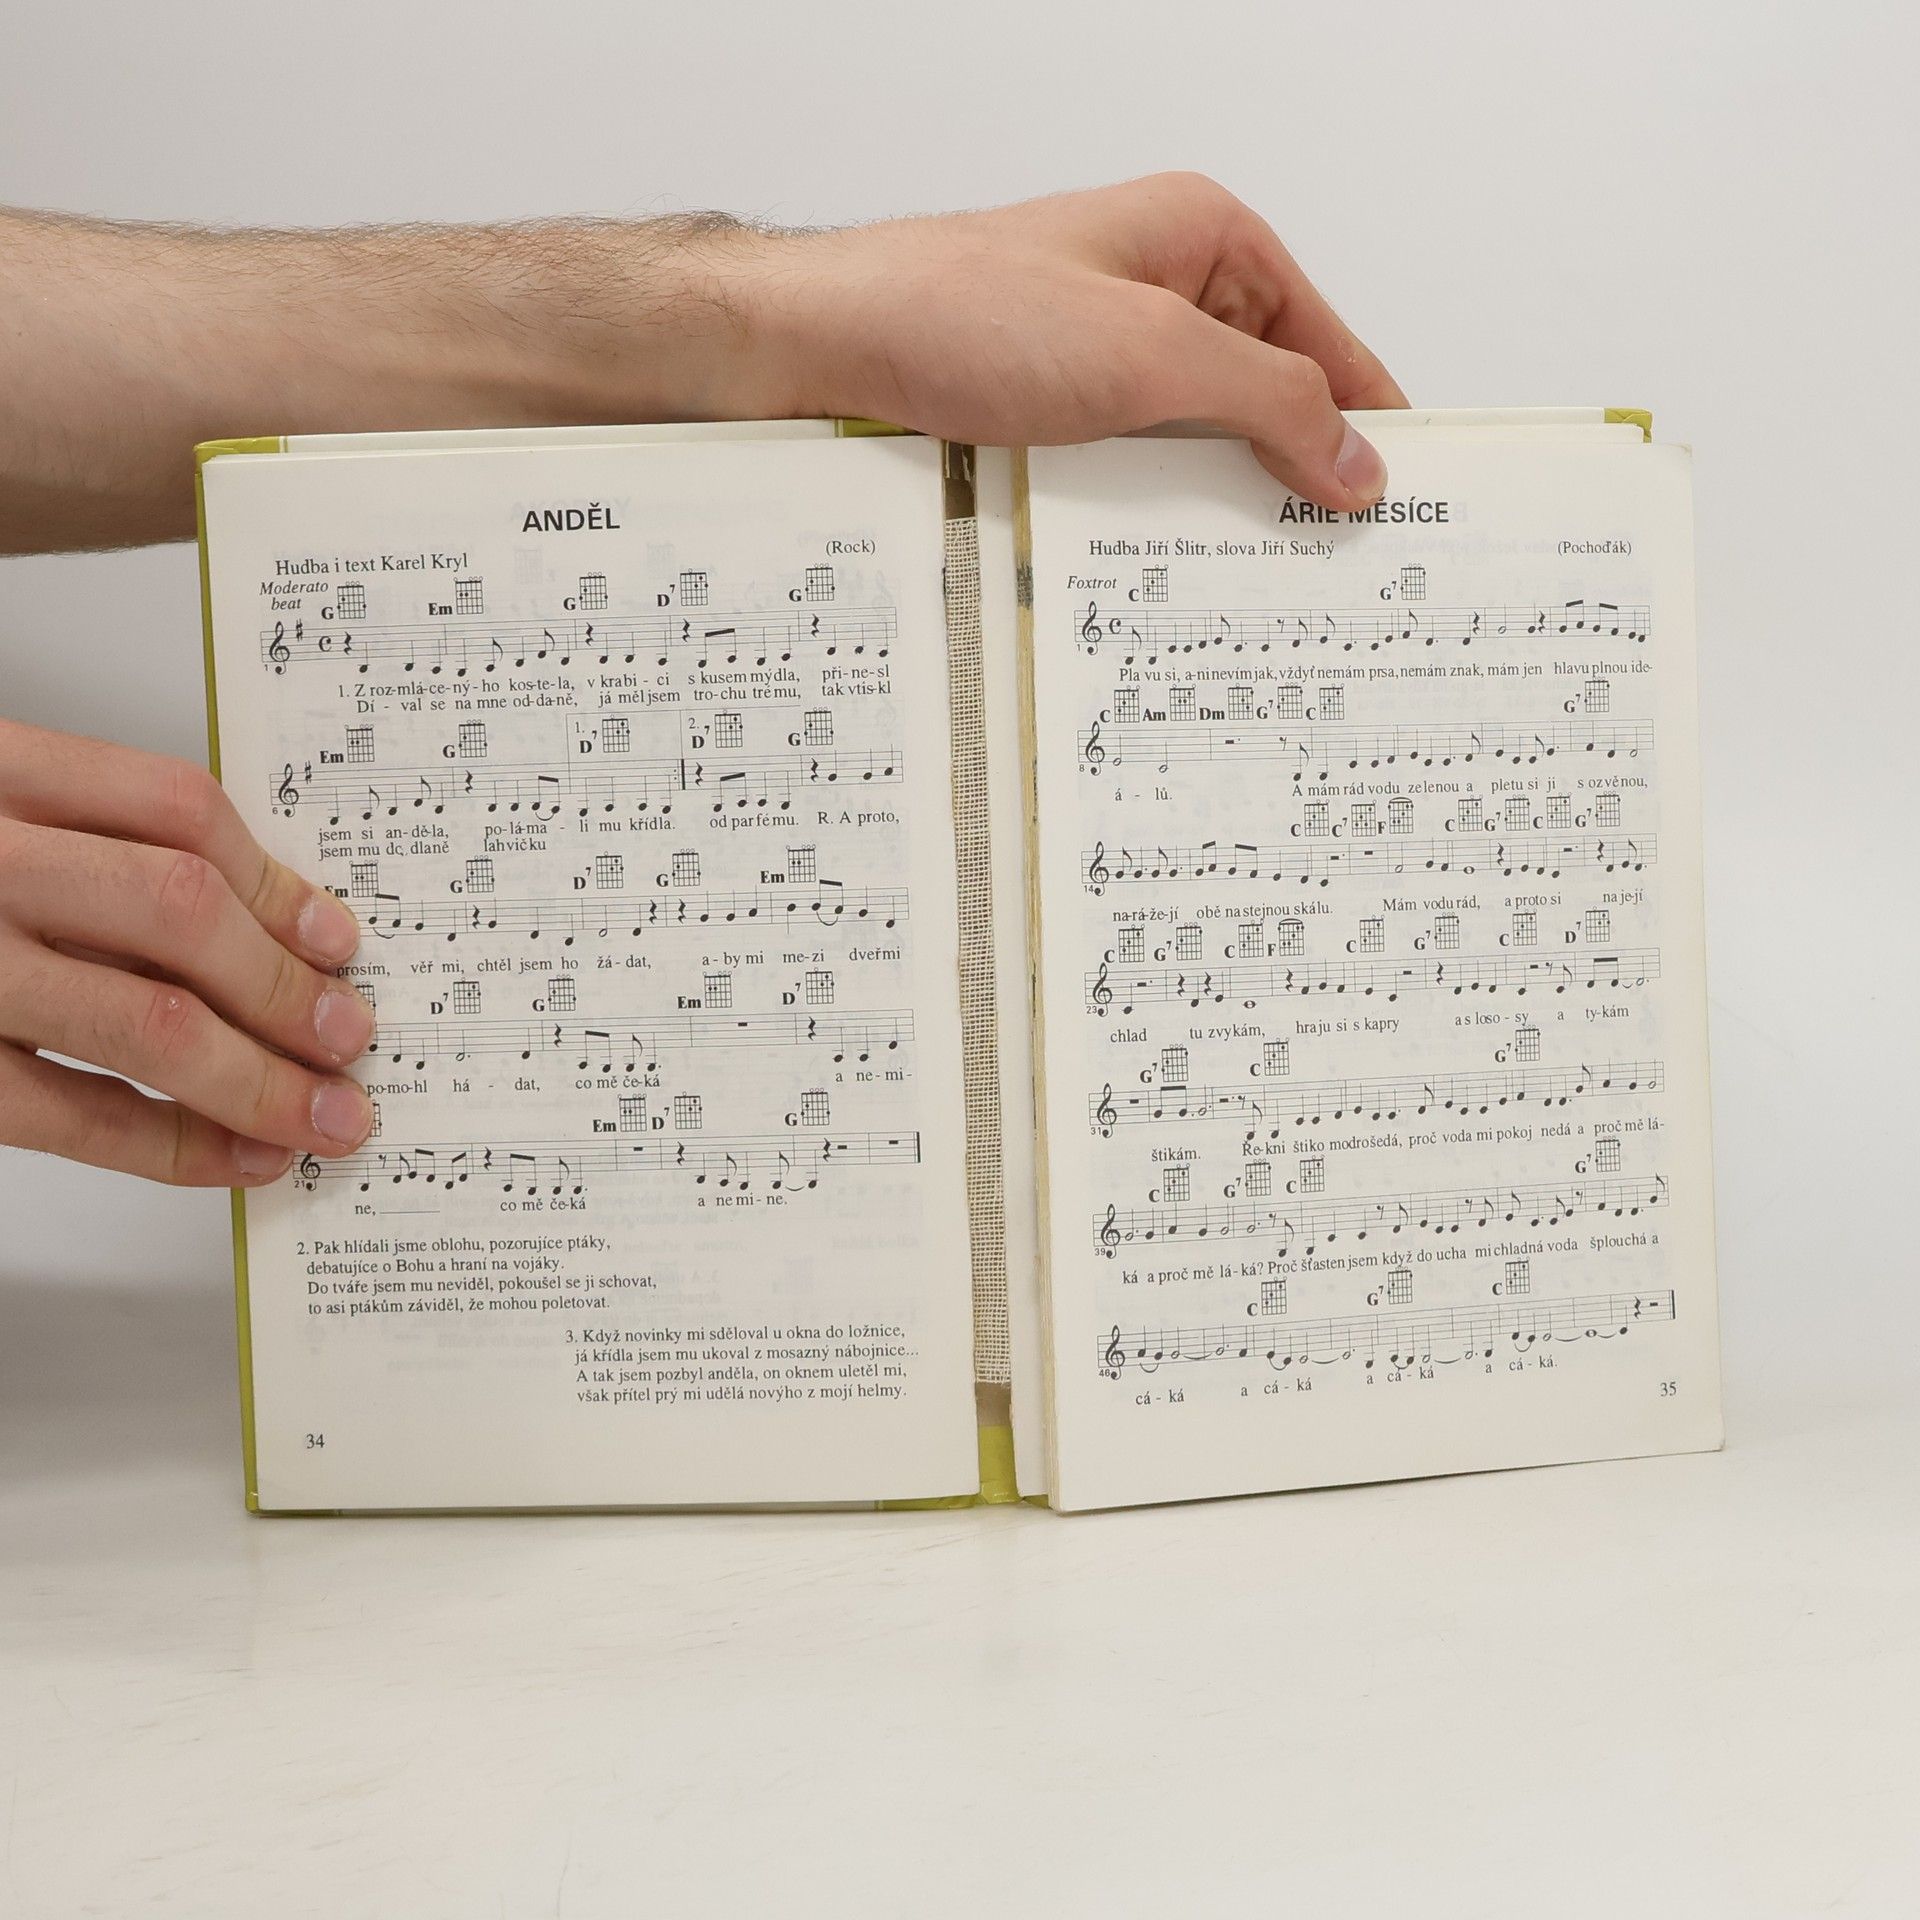 ANDĚL
Hudba i text Karel Kryl
(Rock)
Moderato
beat
G Em G D7 G
1
1. Z roz-mlá-ce-ný-ho kos-te-la, v krabi - ci s kusem mýdla, při-ne-sl
Dí - val se na mne od-da-ně, já měl jsem tro-chu trému, tak vtis-kl
Em G 1. D7 2. D7 G
6
jsem si an-dě-la, po-lá-ma - li mu křídla. od parfému. R. A proto,
jsem mu do dlaně lahvičku
Em G D7 G Em
prosím, věř mi, chtěl jsem ho žá-dat, a-by mi me-zi dveřmi
D7 G Em D7
po-mo-hl há - dat, co mě če-ká a ne-mi-
Em D7 G
21
ne, co mě če-ká a ne mi-ne.
2. Pak hlídali jsme oblohu, pozorujíce ptáky,
debatujíce o Bohu a hraní na vojáky.
Do tváře jsem mu neviděl, pokoušel se ji schovat,
to asi ptákům záviděl, že mohou poletovat.
3. Když novinky mi sděloval u okna do ložnice,
já křídla jsem mu ukoval z mosazný nábojnice...
A tak jsem pozbyl anděla, on oknem uletěl mi,
však přítel prý mi udělá novýho z mojí helmy.
34
ÁRIE MĚSÍCE
Hudba Jiří Šlitr, slova Jiří Suchý
(Pochoďák)
Foxtrot
C G7
1
Pla vu si, a-ni nevím jak, vždyť nemám prsa, nemám znak, mám jen hlavu plnou ide-
C Am Dm G7 C G7
8
á - lů. A mám rád vodu zelenou a pletu si ji s ozvěnou,
C C7 F C G7 C G7
14
na-rá-že-jí obě na stejnou skálu. Mám vodu rád, a proto si na je-jí
C G7 C F C G7 C D7
23
chlad tu zvykám, hraju si s kapry a s loso - sy a ty-kám
G7 C G7
31
štikám. Ře-kni štiko modrošedá, proč voda mi pokoj nedá a proč mě lá-
C G7 C G7
39
ká a proč mě lá-ká? Proč šťasten jsem když do ucha mi chladná voda šplouchá a
C G7 C
46
cá - ká a cá - ká a cá - ká a cá - ká.
35